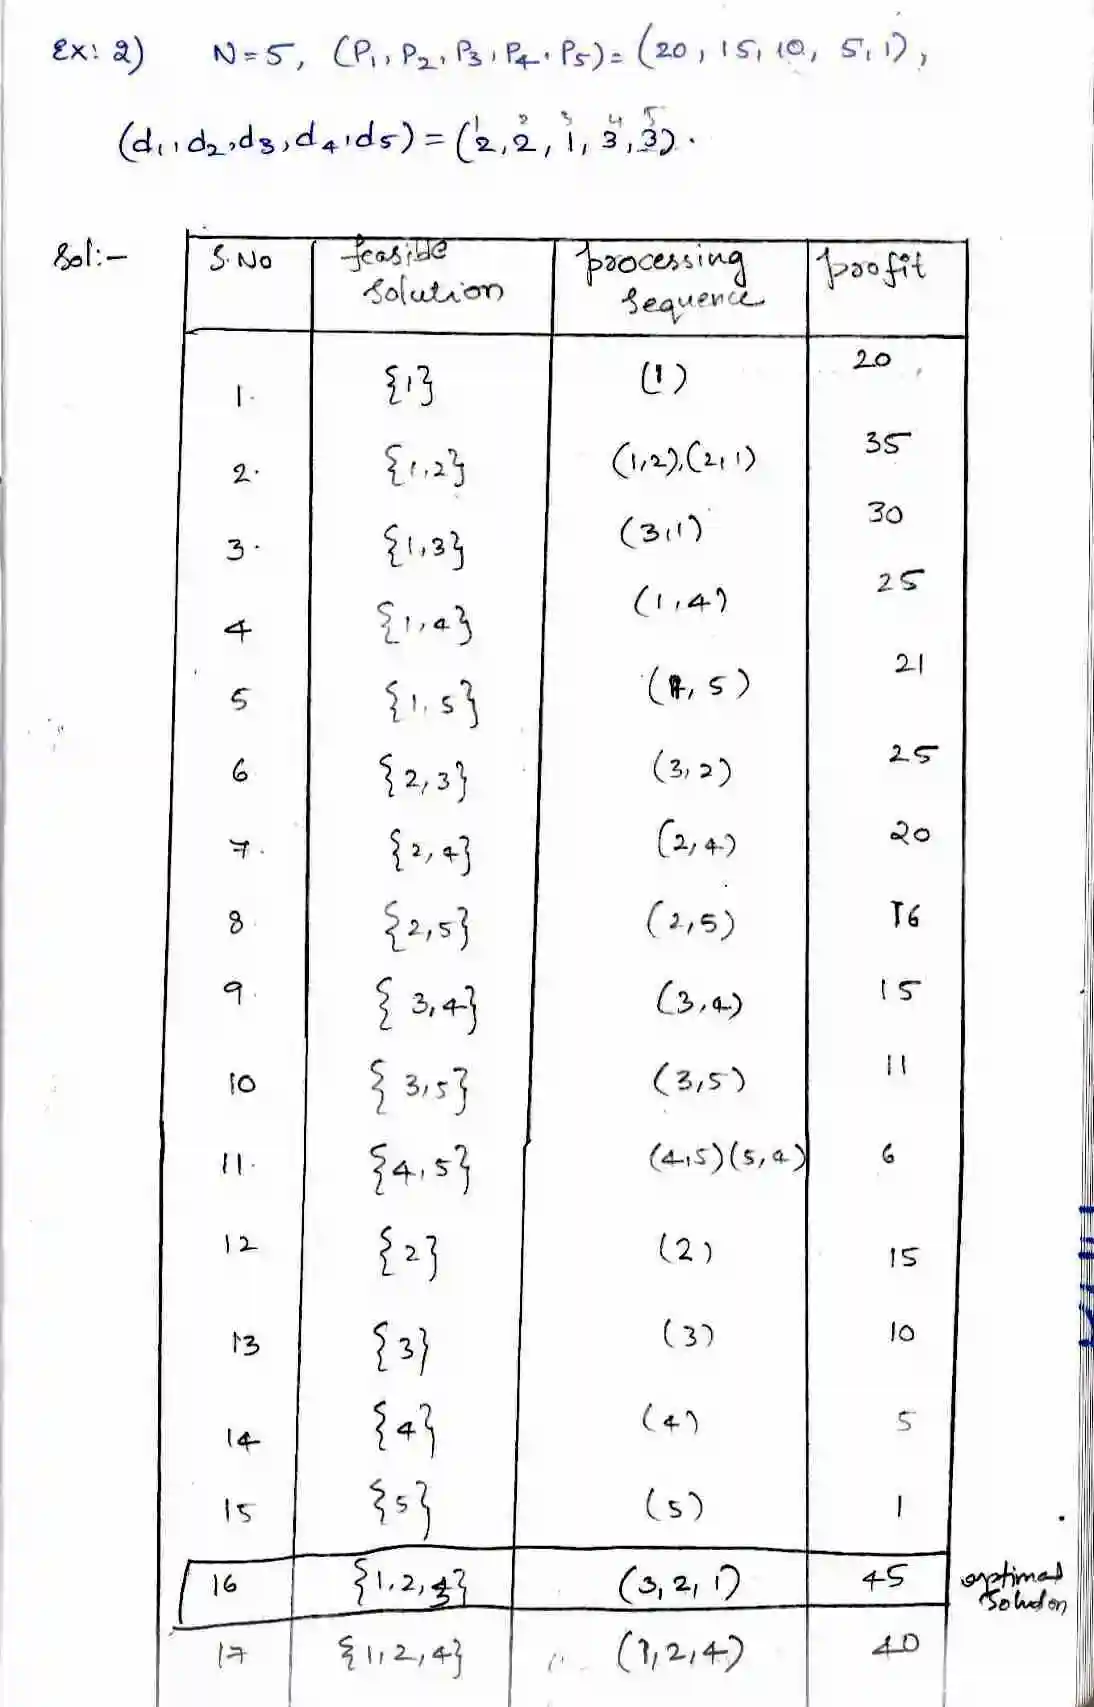 Ex: 2) N=5, (P1, P2, P3, P4, P5) = (20, 15, 10, 5, 1),
1 2 3 4 5
(d1, d2, d3, d4, d5) = (2, 2, 1, 3, 3).
Sol:-
S.No feasible solution processing sequence profit
1. {1} (1) 20
2. {1,2} (1,2),(2,1) 35
3. {1,3} (3,1) 30
4 {1,4} (1,4) 25
5 {1,5} (1,5) 21
6 {2,3} (3,2) 25
7. {2,4} (2,4) 20
8. {2,5} (2,5) 16
9. {3,4} (3,4) 15
10 {3,5} (3,5) 11
11. {4,5} (4,5)(5,4) 6
12 {2} (2) 15
13 {3} (3) 10
14 {4} (4) 5
15 {5} (5) 1
16 {1,2,3} (3,2,1) 45 optimal solution
17 {1,2,4} (1,2,4) 40